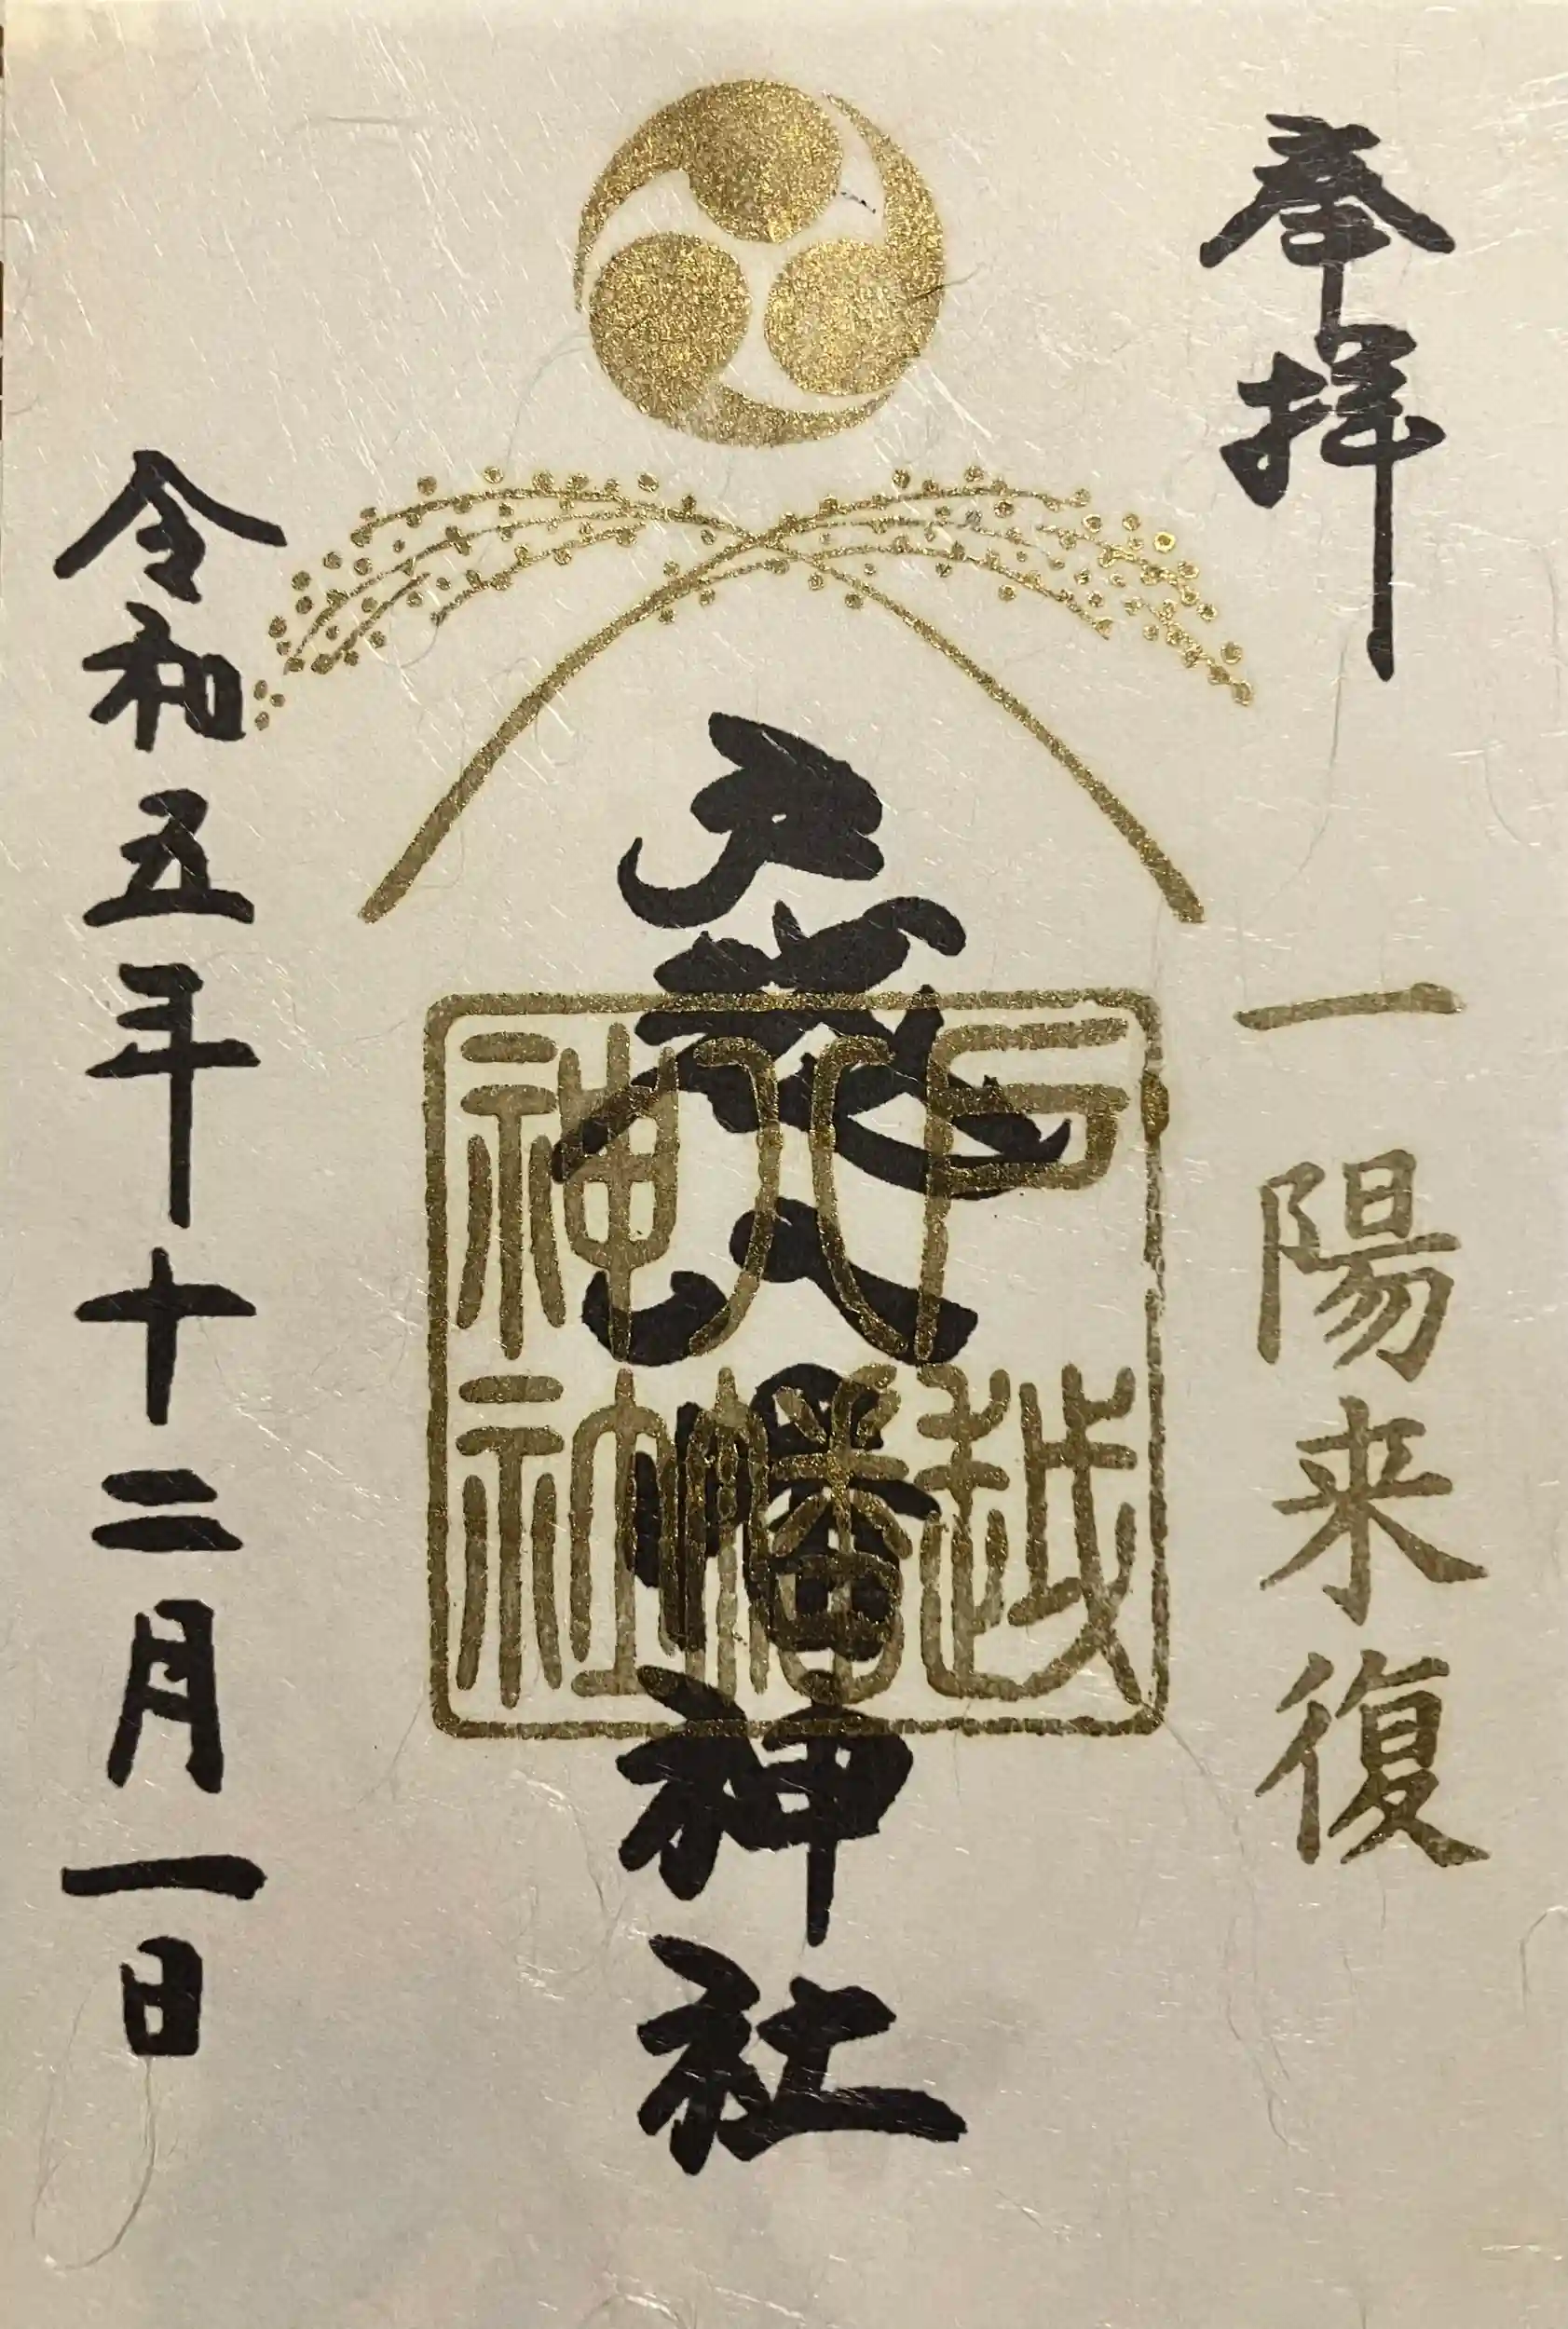 奉拝
一陽来復
戸越八幡神社
戸越
八幡
神社
令和五年十二月一日